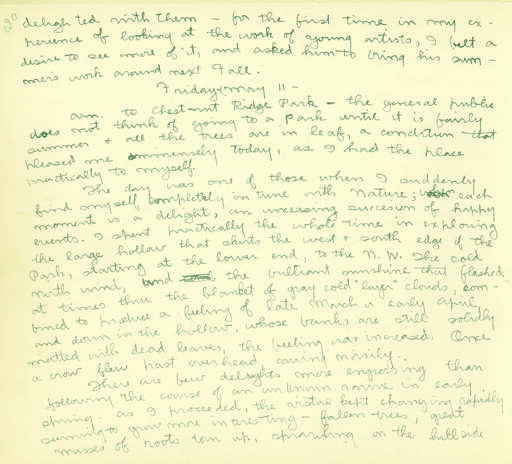 delighted with them – for the first time in my ex-
perience of looking at the work of young artists, I felt a
desire to see more of it, and asked him to bring his sum-
mers work around next Fall.
Friday May 11 –
a.m. to Chestnut Ridge Park – the general public
does not think of going to a park until it is fairly
summer + all the trees are in leaf, a condition that
pleased me immensely today, as I had the place
practically to myself.
The day was one of those when I suddenly
find myself completely in tune with nature; each
moment is a delight, an unceasing succession of happy
events. I spent practically the whole time in exploring
the large hollow that skirts the west + south edge of the
Park, starting at the lower end, to the N.W. The cold
north wind, and the brilliant sunshine that flashed
at times thru the blanket of gray cold "layer" clouds, com-
bined to produce a feeling of late March or early April,
and down in the hollow, whose banks are still solidly
matted with dead leaves, the feeling was increased. Once
a crow flew past overhead, cawing noisily.
There are few delights more engrossing than
following the course of an unknown ravine in early
spring. As I proceeded, the vistas kept changing rapidly
seeming to grow more interesting – fallen trees, great
masses of roots torn up, sprawling on the hillside